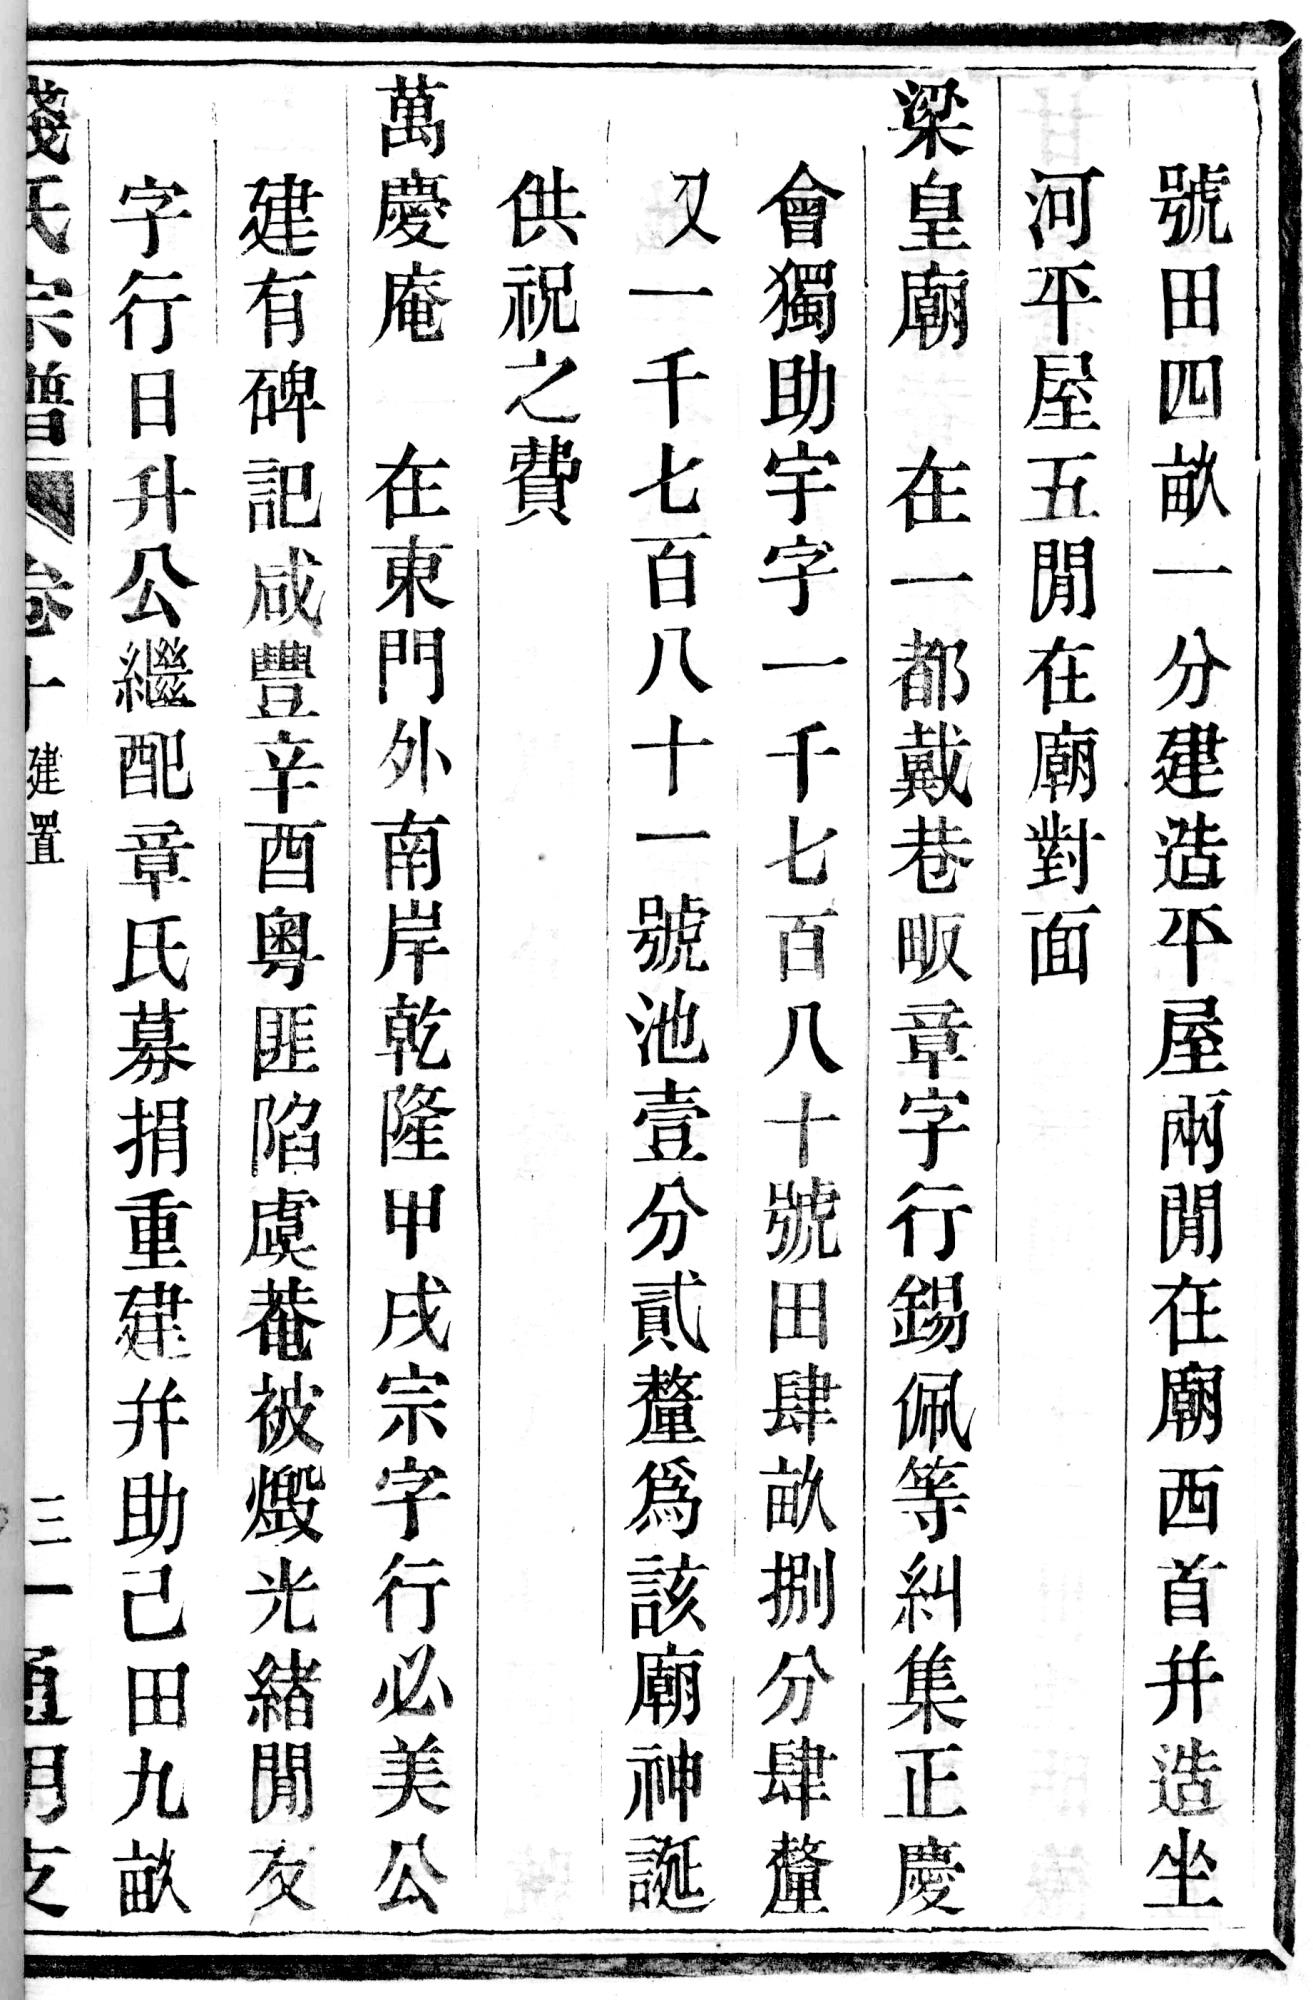 號田四畝一分建造平屋兩閒在廟西首并造坐
河平屋五閒在廟對面
梁皇廟　在一都戴巷畈章字行錫佩等糾集正慶
會獨助宇字一千七百八十號田肆畝捌分肆釐
又一千七百八十一號池壹分貳釐爲該廟神誕
供祝之費
萬慶庵　在東門外南岸乾隆甲戌宗字行必美公
建有碑記咸豐辛酉粵匪陷虞菴被燬光緒閒友
字行日升公繼配章氏募捐重建并助己田九畝
錢氏宗譜　卷十　建置　三一　通明支